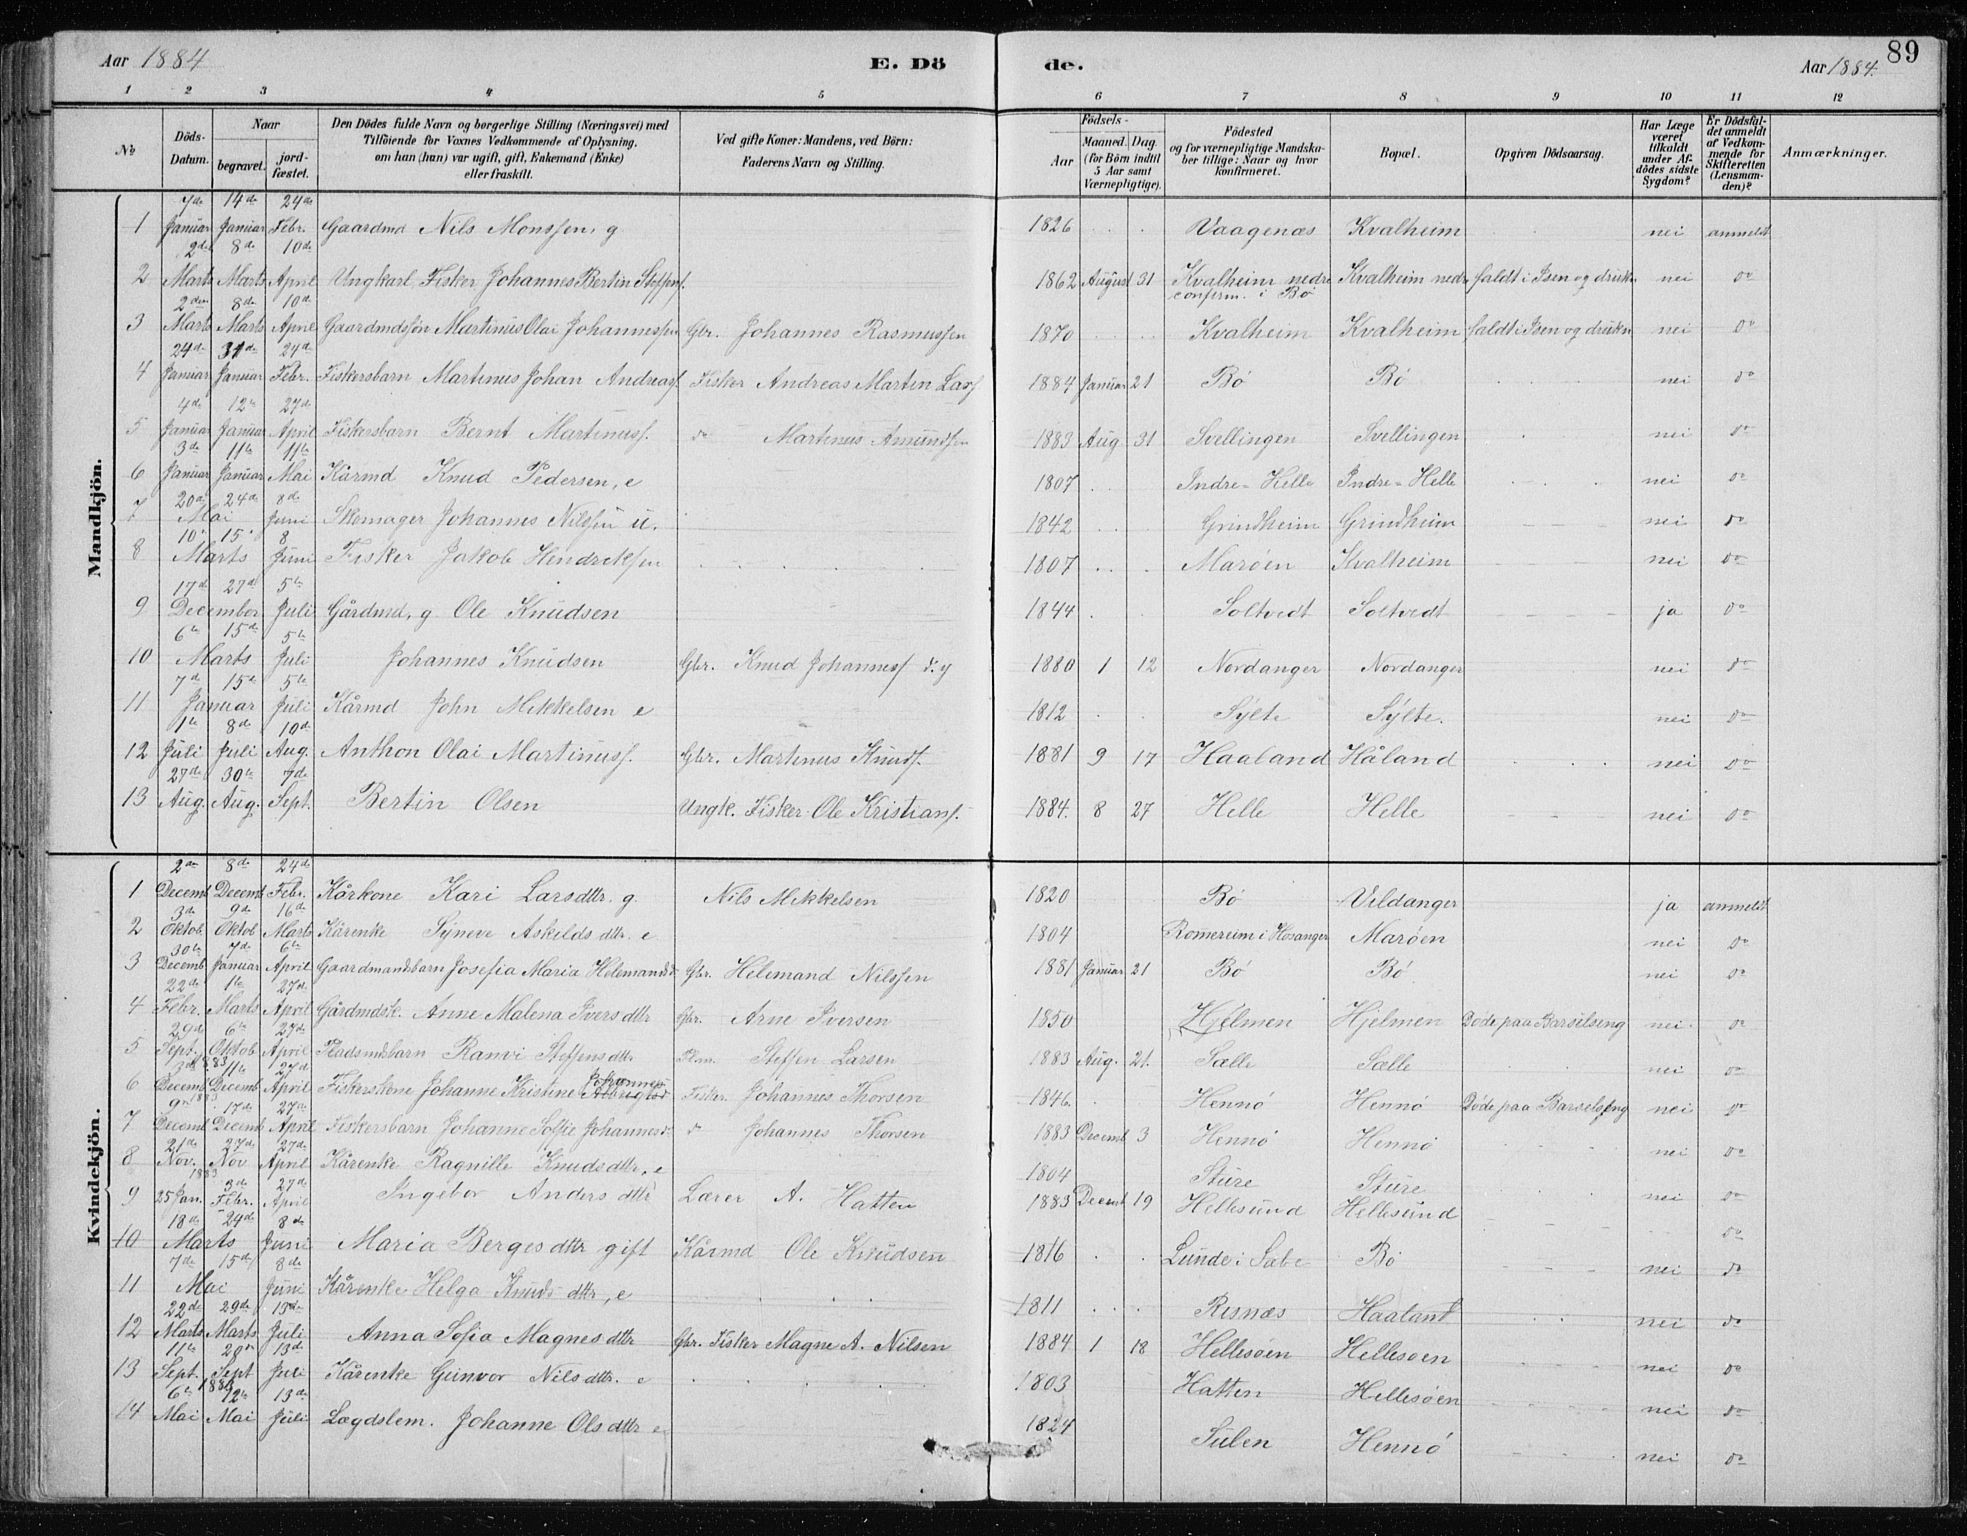 Aar 1884 E. Dö de. Aar 1884. 89
1 2 3 4 5 6 7 8 9 10 11 12
No Döds-Datum. Naar begravet. jordfæstet. Den Dödes fulde Navn og borgerlige Stilling (Næringsvei) med Tilföiende for Voxnes Vedkommende af Oplysning. om han (hun) var ugift, gift, Enkemand (Enke) eller fraskilt. Ved gifte Koner: Mandens, ved Börn: Faderens Navn og Stilling. Födsels- Aar Maaned. Dag. (for Börn indtil 5 Aar samt Værnepligtige). Födested og for værnepligtige Mandskaber tillige: Naar og hvor konfirmeret. Bopæl. Opgiven Dödsaarsag. Har Læge været tilkaldt under Afdödes sidste Sygdom? Er Dödsfaldet anmeldt af Vedkommende for Skifteretten (Lensmanden)? Anmærkninger.
Mandkjön.
1 7de Januar 14de Januar 24de Febr. Gaardmd Nils Monssen, g 1826 Vaagenæs Kvalheim nei anmeldt
2 2de Marts 8de Marts 10de April Ungkarl, Fisker Johannes Bertin Steffens. 1862 August 31 Kvalheim nedre confirm. i Bø Kvalheim nedre faldt i Isen og drukn nei do
3 2den Marts 8de Marts 10de April Gaardmdssøn Martinus Olai Johannessen Gbr. Johannes Rasmussen 1870 Kvalheim Kvalheim faldt i Isen og drukn nei do
4 24de Januar 31de Januar 24de Febr. Fiskersbarn Martinus Johan Andreass. Fisker Andreas Martin Lass 1884 Januar 21 Bø Bø nei do
5 4de Januar 12te Januar 27de April Fiskersbarn Bernt Martinuss. do Martinus Amundsen 1883 Aug 31 Svellingen Svellingen nei do
6 3de Januar 11te Januar 11te Mai Kårmd Knud Pedersen, e 1807 Indre-Helle Indre-Helle nei do
7 20de 24de Mai 8de Juni Skomager Johannes Nilssen u. 1842 Grindheim Grindheim nei do
8 10. 15. Marts 8 Juni Fisker Jakob Hendriksen 1807 Marøen Kvalheim nei do
9 17de 27de December 5te Juli Gårdmd, g. Ole Knudsen 1844 Soltvedt Soltvedt ja do
10 6te 15de Marts 5te Juli Johannes Knudsen Gbr. Knud Johanness d.y 1880 1 12 Nordanger Nordanger nei do
11 7de 15de Januar 5te Juli Kårmd John Mikkelsen e 1812 Sylte Sylte. nei do
12 1te Juli 8de Juli 10de Aug. Anthon Olai Martinuss. Gbr. Martinus Knuds. 1881 9 17 Haaland Håland nei do
13 27de Aug. 30te Aug. 7de Sept. Bertin Olsen Ungk. Fisker Ole Kristians. 1884. 8 27 Helle Helle nei do
Kvindekjön.
1 2de Decemb 8de Decemb 24de Febr. Kårkone Kari Larsdttr. g. Nils Mikkelsen 1820 Bø Vildanger ja anmeldt
2 3de Oktob 9de Oktob 16de Marts Kårenke Synneve Askildsdttr. e 1804 Romereim i Hosanger Marøen nei do
3 30te Decemb 7de Januar 6te April Gaardmandsbarn Josefia Maria Helemandsd. Gbr. Helemand Nilssen 1881 Januar 21 Bø Bø nei do
4 22de Febr. 1te Marts 27de April Gårdmdsk. Anne Malena Iversdttr Gbr. Arne Iversen 1850 Hjelmen Hjelmen Døde paa Barselseng nei do
5 29d Sept. 6te Oktob 1883 27de April Pladsmdsbarn Ranvi Steffensdttr Plm. Steffen Larsen 1883 Aug. 21. Sælle Sælle nei do
6 3de Decemb 11te Decemb 1883 27de April Fiskerskone Johanne Kristine Johannesd Fisker Johannes Thorsen 1846. Hennø Hennø Døde paa Barselseng nei do
7 9de Decemb 17de Decemb 27de April Fiskersbarn Johanne Sofie Johannesd. do Johannes Thorsen 1883 Decemb 3 Hennø Hennø nei do
8 21de Nov. 27de Nov 1883 27de April Kårenke Ragnille Knudsdttr, e 1804 Sture Sture nei do
9 25 Jan. 3de Febr. 27de April Ingebor Andersdttr Lærer A. Hatten 1883 Decemb 19 Hellesund Hellesund do
10 18de 24de Marts 8de Juni Maria Bergesdttr gift Kårmd Ole Knudsen 1816 Lunde i Sæbe Bø nei do
11 7de 15de Mai 8de Juni Kårenke Helga Knudsdttr, e 1811 Risnæs Haaland nei do
12 22de Marts 29de Marts 13de Juli Anna Sofia Magnesdttr Gbr. Fisker Magne A. Nilsen 1884 1 18 Hellesøen Hellesøen nei do
13 11te Sept. 20de Sept 1883 13de Juli Kårenke Gunvor Nilsdttr. e 1803 Hatten Hellesøen nei do
14 6te Mai 12te Mai 13de Juli Lægdslem. Johanne Olsdttr e 1824 Sulen Hennø nei do